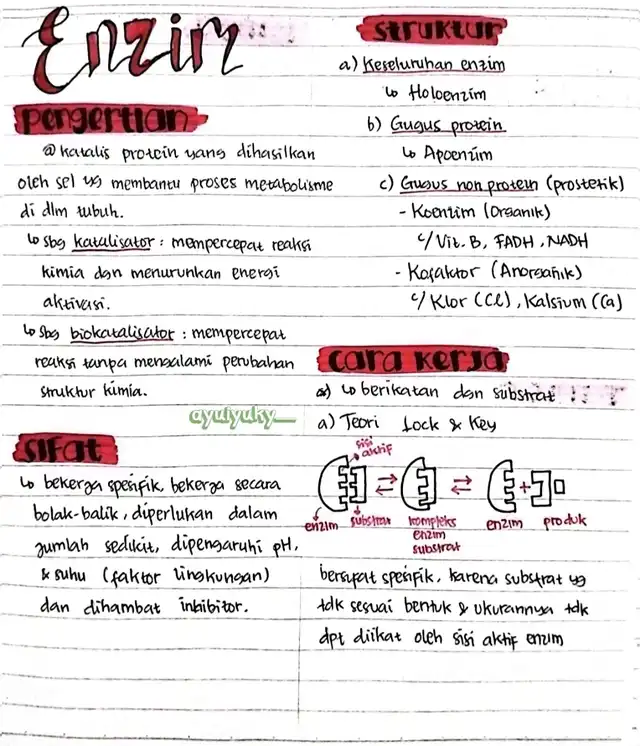 Enzim
pengertian
@ katalis protein yang dihasilkan
oleh sel yg membantu proses metabolisme
di dlm tubuh.
↳ sbg katalisator : mempercepat reaksi
kimia dgn menurunkan energi
aktivasi.
↳ sbg biokatalisator : mempercepat
reaksi tanpa mengalami perubahan
struktur kimia.
ayulyuky__
sifat
↳ bekerja spesifik, bekerja secara
bolak-balik, diperlukan dalam
jumlah sedikit, dipengaruhi pH,
& suhu (faktor lingkungan)
dan dihambat inhibitor.
struktur
a) Keseluruhan enzim
↳ Holoenzim
b) Gugus protein
↳ Apoenzim
c) Gugus non protein (prostetik)
- Koenzim (Organik)
c/ Vit. B, FADH, NADH
- Kofaktor (Anorganik)
c/ Klor (Cl), Kalsium (Ca)
cara kerja
↳ berikatan dgn substrat
a) Teori Lock & Key
sisi
aktif
enzim substrat kompleks enzim substrat enzim + produk
bersifat spesifik, karena substrat yg
tdk sesuai bentuk & ukurannya tdk
dpt diikat oleh sisi aktif enzim